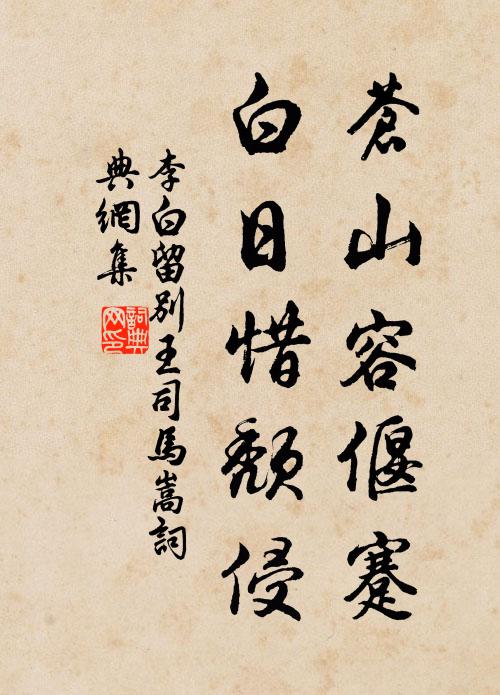 蒼山容偃蹇
白日惜頹侵
李白留別王司馬嵩詞
典網集
詞典
网印